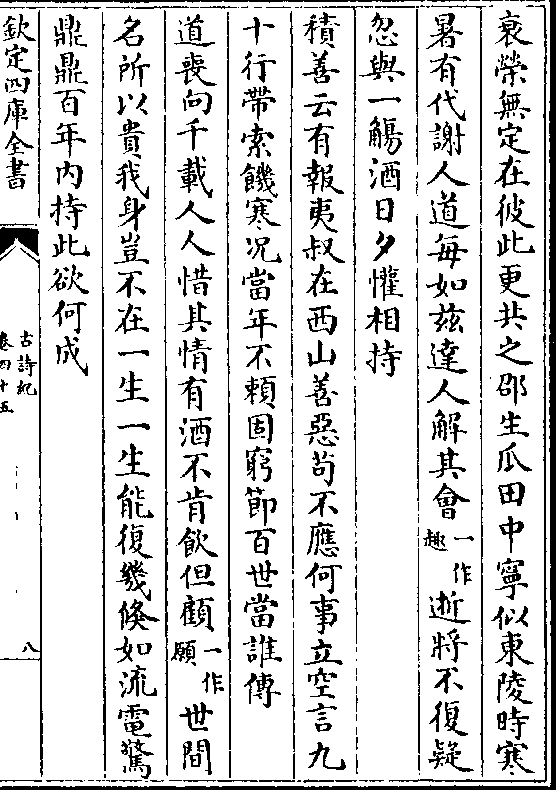 衰榮無定在彼此更共之邵生瓜田中寧似東陵時寒
暑有代謝人道每如兹達人解其會一作趣逝將不復疑
忽與一觴酒日夕懽相持
積善云有報夷叔在西山善惡苟不應何事立空言九
十行帶索饑寒况當年不賴固窮節百世當誰傳
道喪向千載人人惜其情有酒不肯飲但顧一作願世間
名所以貴我身豈不在一生一生能復幾倐如流電驚
鼎鼎百年内持此欲何成
欽定四庫全書
古詩紀
卷四十五
八